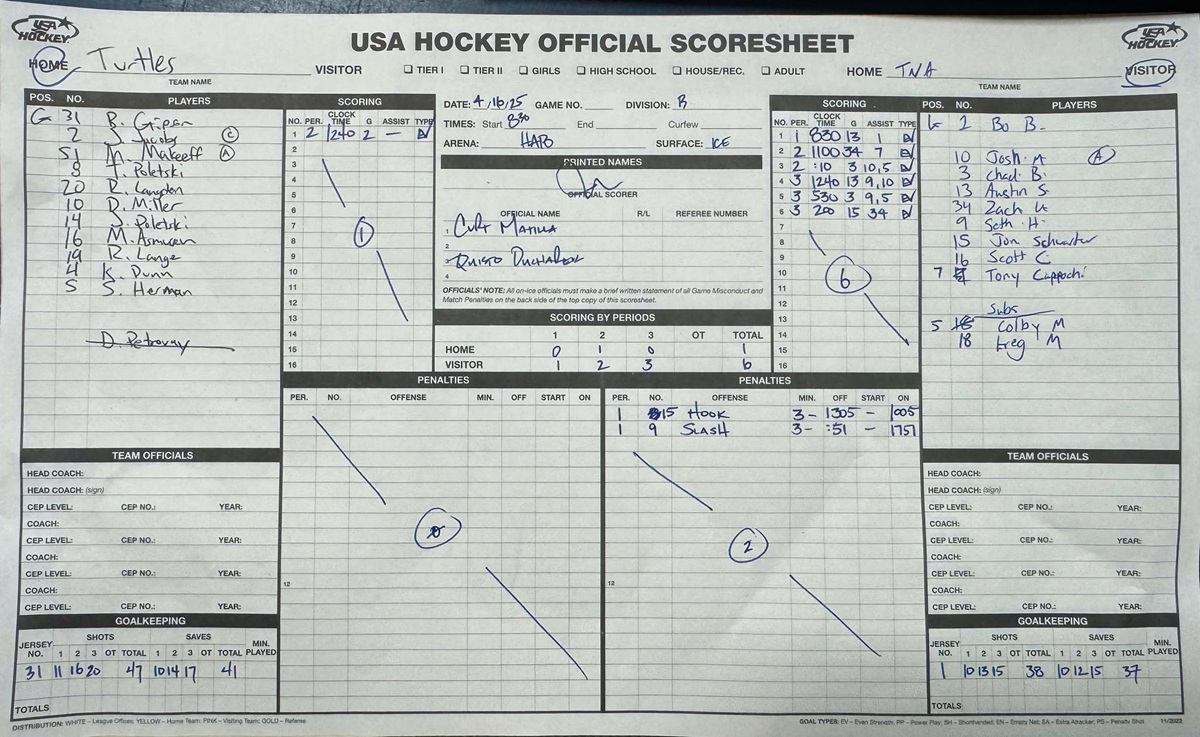 USA HOCKEY
USA HOCKEY OFFICIAL SCORESHEET
USA HOCKEY
HOME Turtles VISITOR ❑ TIER I ❑ TIER II ❑ GIRLS ❑ HIGH SCHOOL ❑ HOUSE/REC. ❑ ADULT HOME TNA VISITOR
TEAM NAME
TEAM NAME
POS. NO. PLAYERS
G 31 B.
2 J. Jacoby C
51 M. Makeeff A
8 T. Poletski
20 R. Langton
10 D. Miller
14 J. Poletski
16 M. Asmusen
19 R. Lange
4 K. Dunn
5 S. Herman
D. Petrovay
SCORING
NO. PER. CLOCK TIME G ASSIST TYPE
1 2 1240 2 — EV
2
3
4
5
6
7
8
9
10
11
12
13
14
15
16
1
DATE: 4/16/25 GAME NO. DIVISION: B
TIMES: Start 830 End Curfew
ARENA: HAPO SURFACE: ICE
PRINTED NAMES
OFFICIAL SCORER
OFFICIAL NAME R/L REFEREE NUMBER
1 Curt
2
3
4
OFFICIALS' NOTE: All on-ice officials must make a brief written statement of all Game Misconduct and
Match Penalties on the back side of the top copy of this scoresheet.
SCORING BY PERIODS
1 2 3 OT TOTAL
HOME 0 1 0 1
VISITOR 1 2 3 6
SCORING
NO. PER. CLOCK TIME G ASSIST TYPE
1 1 830 13 1 EV
2 2 1100 34 7 EV
3 2 :10 3 10,5 EV
4 3 1240 13 9,10 EV
5 3 530 3 9,5 EV
6 3 200 15 34 EV
7
8
9
10
11
12
13
14
15
16
6
POS. NO. PLAYERS
1 Bo B.
10 Josh M A
3 Chad B.
13 Austin S
34 Zach
9 Seth H.
15 Jon
16 Scott C
7 Tony
Subs
5 Colby M
18 Greg M
PENALTIES
PER. NO. OFFENSE MIN. OFF START ON
0
12
PENALTIES
PER. NO. OFFENSE MIN. OFF START ON
1 15 HOOK 3- 1305 - 1005
1 9 SLASH 3- :51 - 1751
2
12
TEAM OFFICIALS
HEAD COACH:
HEAD COACH: (sign)
CEP LEVEL: CEP NO.: YEAR:
COACH:
CEP LEVEL: CEP NO.: YEAR:
COACH:
CEP LEVEL: CEP NO.: YEAR:
COACH:
CEP LEVEL: CEP NO.: YEAR:
GOALKEEPING
JERSEY NO. SHOTS SAVES MIN. PLAYED
1 2 3 OT TOTAL 1 2 3 OT TOTAL
31 11 16 20 47 10 14 17 41
TOTALS
TEAM OFFICIALS
HEAD COACH:
HEAD COACH: (sign)
CEP LEVEL: CEP NO.: YEAR:
COACH:
CEP LEVEL: CEP NO.: YEAR:
COACH:
CEP LEVEL: CEP NO.: YEAR:
COACH:
CEP LEVEL: CEP NO.: YEAR:
GOALKEEPING
JERSEY NO. SHOTS SAVES MIN. PLAYED
1 2 3 OT TOTAL 1 2 3 OT TOTAL
1 10 13 15 38 10 12 15 37
TOTALS
DISTRIBUTION: WHITE – League Offices; YELLOW – Home Team; PINK – Visiting Team; GOLD – Referee
GOAL TYPES: EV – Even Strength; PP – Power Play; SH – Shorthanded; EN – Empty Net; EA – Extra Attacker; PS – Penalty Shot 11/2022